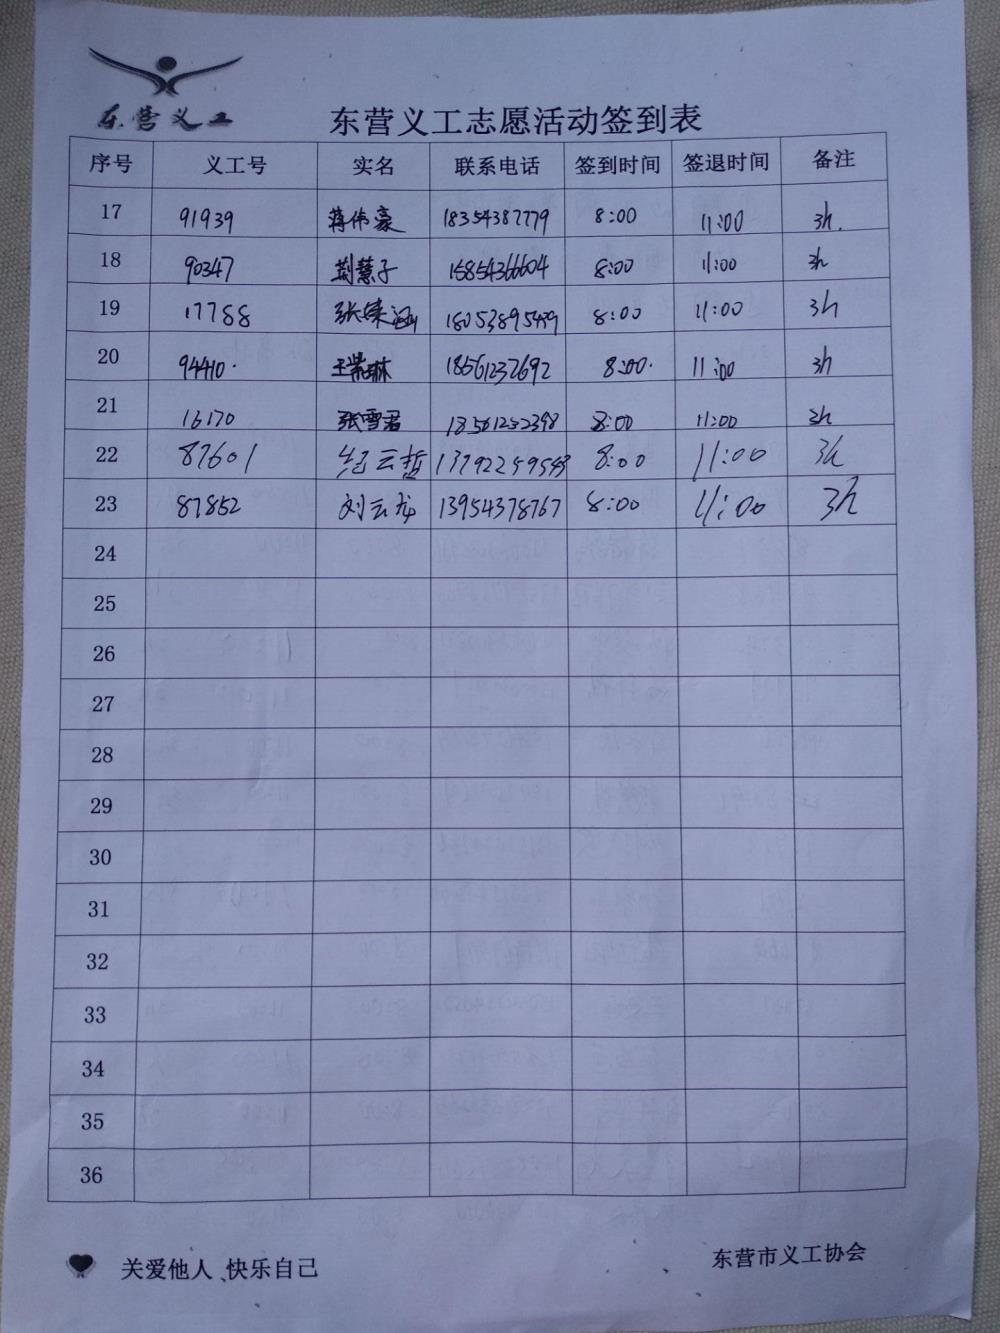 东营义工
东营义工志愿活动签到表
序号 义工号 实名 联系电话 签到时间 签退时间 备注
17 91939 蒋伟豪 18354387779 8:00 11:00 3h.
18 90347 荆慧子 15854366604 8:00 11:00 3h
19 17788 张 涵 8:00 11:00 3h
20 94410. 王 琳 18561232692 8:00. 11:00 3h
21 16170 张雪君 8:00 11:00 3h
22 87601 纪云哲 8:00 11:00 3h
23 87852 刘云龙 13954378767 8:00 11:00 3h
24
25
26
27
28
29
30
31
32
33
34
35
36
关爱他人、快乐自己
东营市义工协会